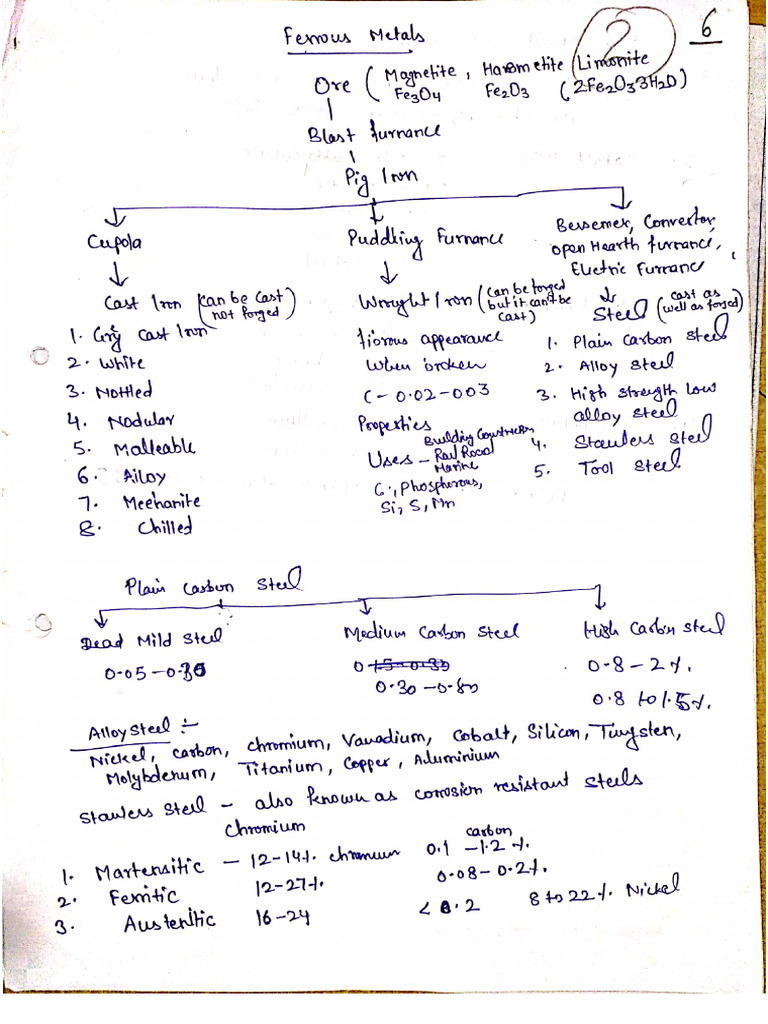 Ferrous Metals
2 6
1
Ore ( Magnetite , Haremetite Limonite
Fe3O4 Fe2O3 (2Fe2O33H2O)
Blast furnance
Pig Iron
Cupola
Puddling Furnance
Bessemer, Convertor,
open Hearth furnance,
Electric Furnance
Cast Iron (can be cast
not forged)
1. Grey Cast Iron
2. White
3. Mottled
4. Nodular
5. Malleable
6. Alloy
7. Meehanite
8. Chilled
Wrought Iron (can be forged
but it can't be
cast)
fibrous appearance
when broken
C - 0.02 - 003
Properties
Uses - Building Construction
Rail Road
Marine
C., Phosphorous,
Si, S, Mn
Steel (cast as
well as forged)
1. Plain Carbon Steel
2. Alloy Steel
3. High Strength Low
alloy steel
4. Stainless steel
5. Tool Steel
Plain Carbon Steel
Dead Mild Steel
0.05 - 0.30
Medium Carbon Steel
0.15-0.30
0.30 - 0.80
High Carbon Steel
0.8 - 2%.
0.8 to 1.5%.
Alloy Steel :-
Nickel, carbon, chromium, Vanadium, Cobalt, Silicon, Tungsten,
Molybdenum, Titanium, Copper, Aluminium
Stainless Steel - also known as corrosion resistant steels
Chromium carbon
1. Martensitic - 12-14%. chromium 0.1 - 1.2%.
2. Ferritic 12-27%. 0.08 - 0.2%.
3. Austenitic 16-24 < 0.2 8 to 22%. Nickel